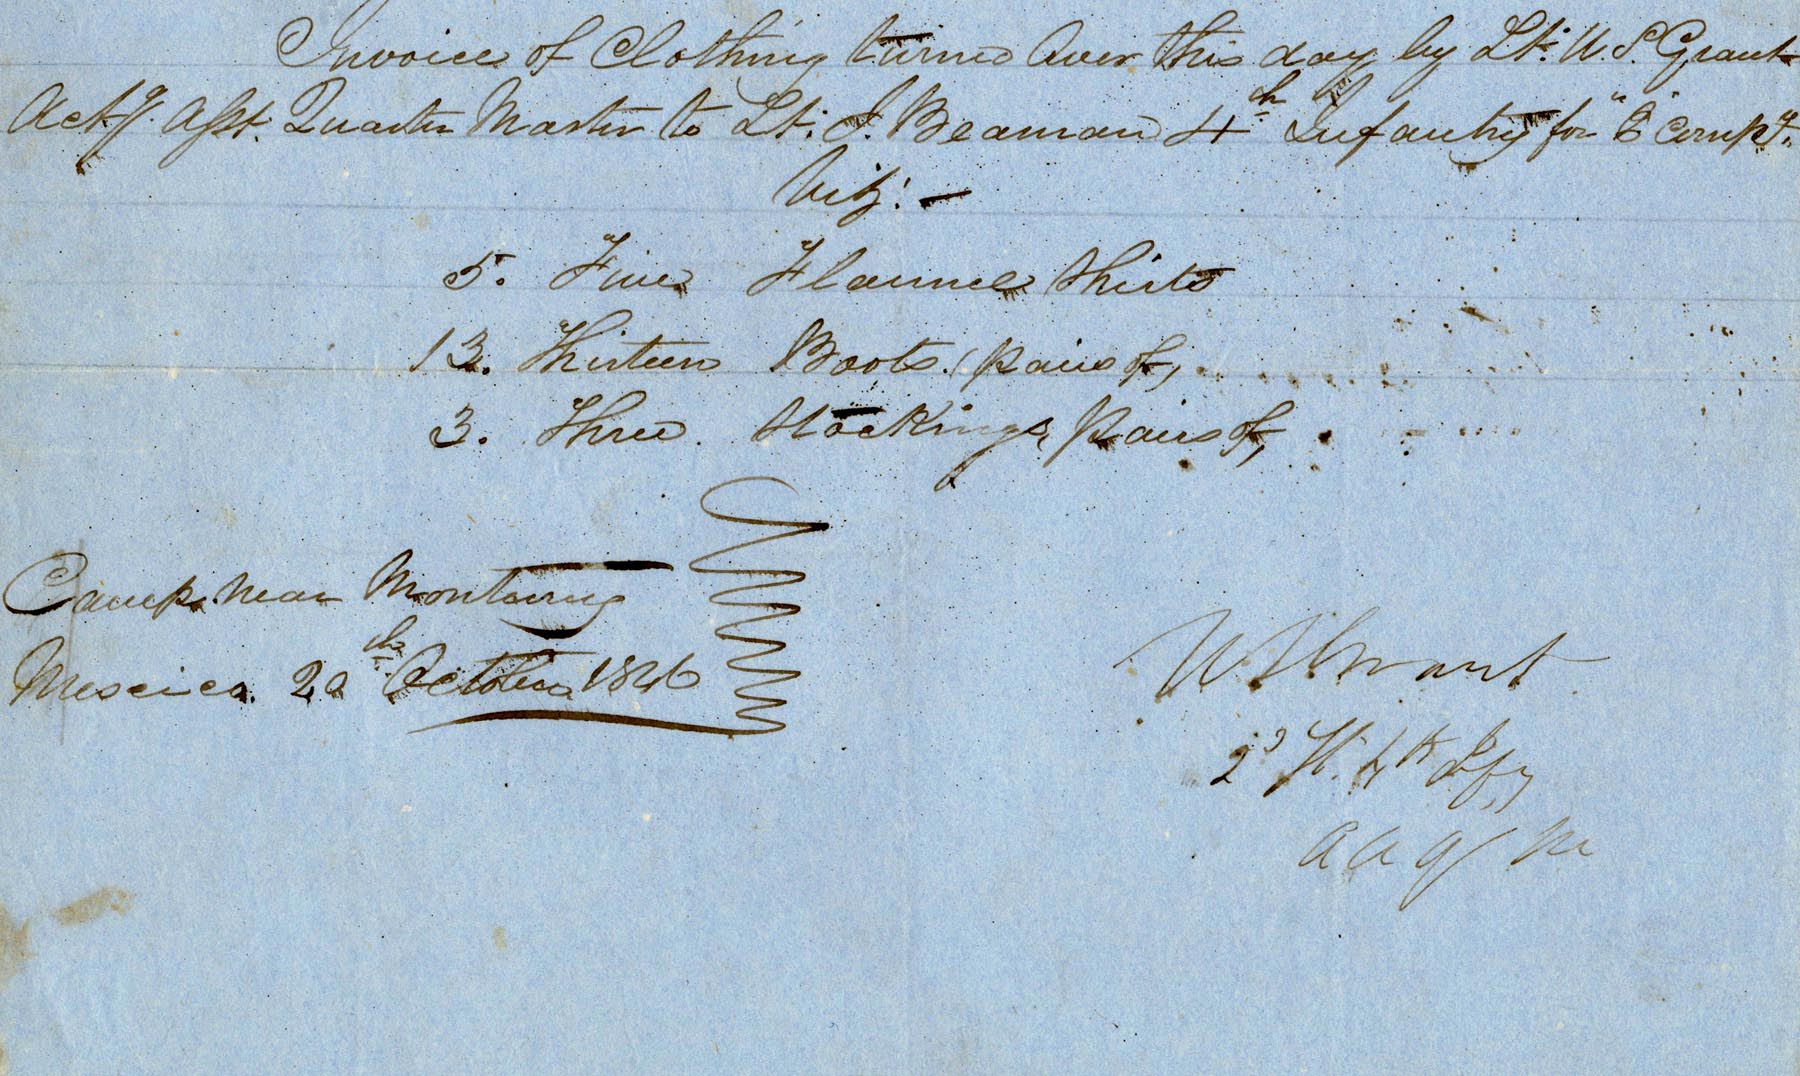 Invoice of Clothing turned over this day by Lt. U. S. Grant
Actg. Asst. Quarter Master to Lt. J. Beaman 4th Infantry for "C" Compy.
Viz: —
5. Five Flannel Shirts
13. Thirteen Boots (pairs of)
3. Three Stockings (pairs of)
Camp near Monterey
Mexico. 20th October 1846
U S Grant
2d Lt. 4th Infy
A A Q M